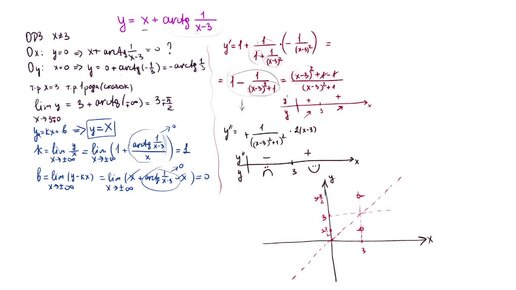 y = x + arctg 1/(x-3)
ОДЗ x≠3
Ox: y=0 => x + arctg 1/(x-3) = 0 ?
Oy: x=0 => y = 0 + arctg(-1/3) = -arctg 1/3
т.р x=3 т.р 1 рода (скачок)
lim y = 3 + arctg(±∞) = 3 ± π/2
x→3±0
y = kx + b => y = x
k = lim y/x = lim (1 + arctg 1/(x-3) / x) = 1
x→±∞ x→±∞
b = lim (y - kx) = lim (x + arctg 1/(x-3) - x) = 0
x→±∞ x→±∞
y' = 1 + 1/(1 + 1/(x-3)²) · (- 1/(x-3)²) =
= 1 - 1/((x-3)²+1) = ((x-3)²+1-1)/((x-3)²+1)
y' + + x
y 3
y'' = + 1/((x-3)²+1)² · 2(x-3)
y'' - +
y 3 x
y
3
x
3